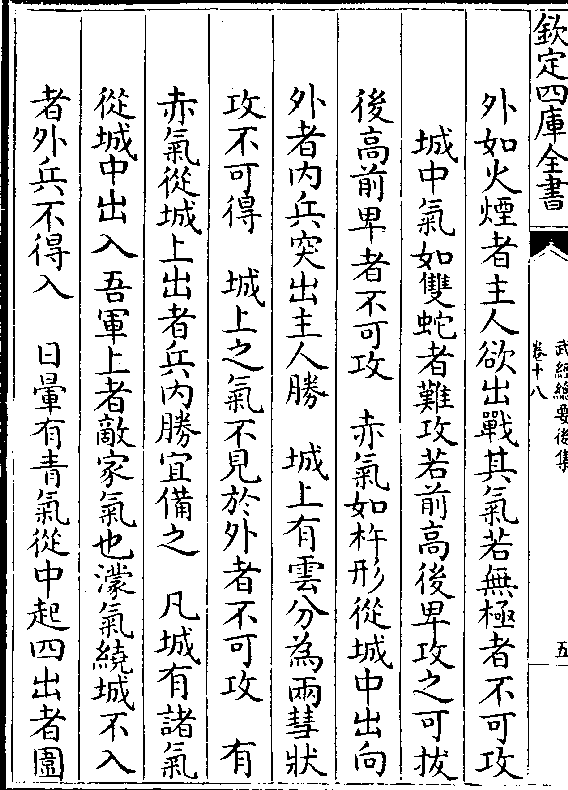 欽定四庫全書
武經總要後集
卷十八
五
外如火煙者主人欲出戰其氣若無極者不可攻
城中氣如雙蛇者難攻若前高後卑攻之可拔
後高前卑者不可攻　赤氣如杵形從城中出向
外者内兵突出主人勝　城上有雲分為兩彗狀
攻不可得　城上之氣不見於外者不可攻　有
赤氣從城上出者兵内勝宜備之　凡城有諸氣
從城中出入吾軍上者敵家氣也濛氣繞城不入
者外兵不得入　日暈有青氣從中起四出者圍